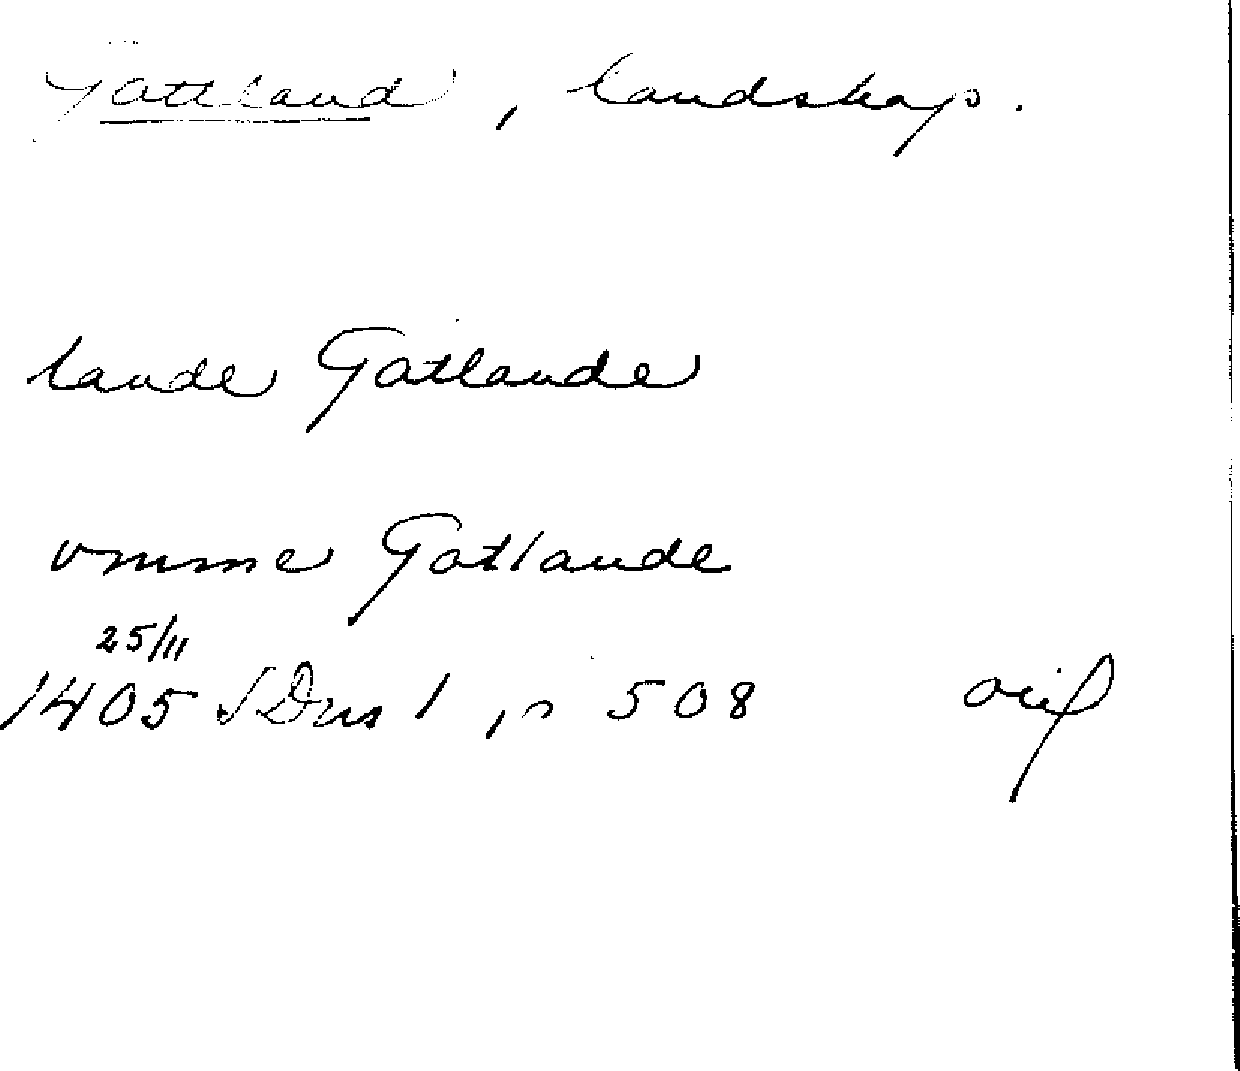 Gottland, landskap.
lande Gotlande
vmme Gotlande
25/11
1405 SDns 1, p 508 orig